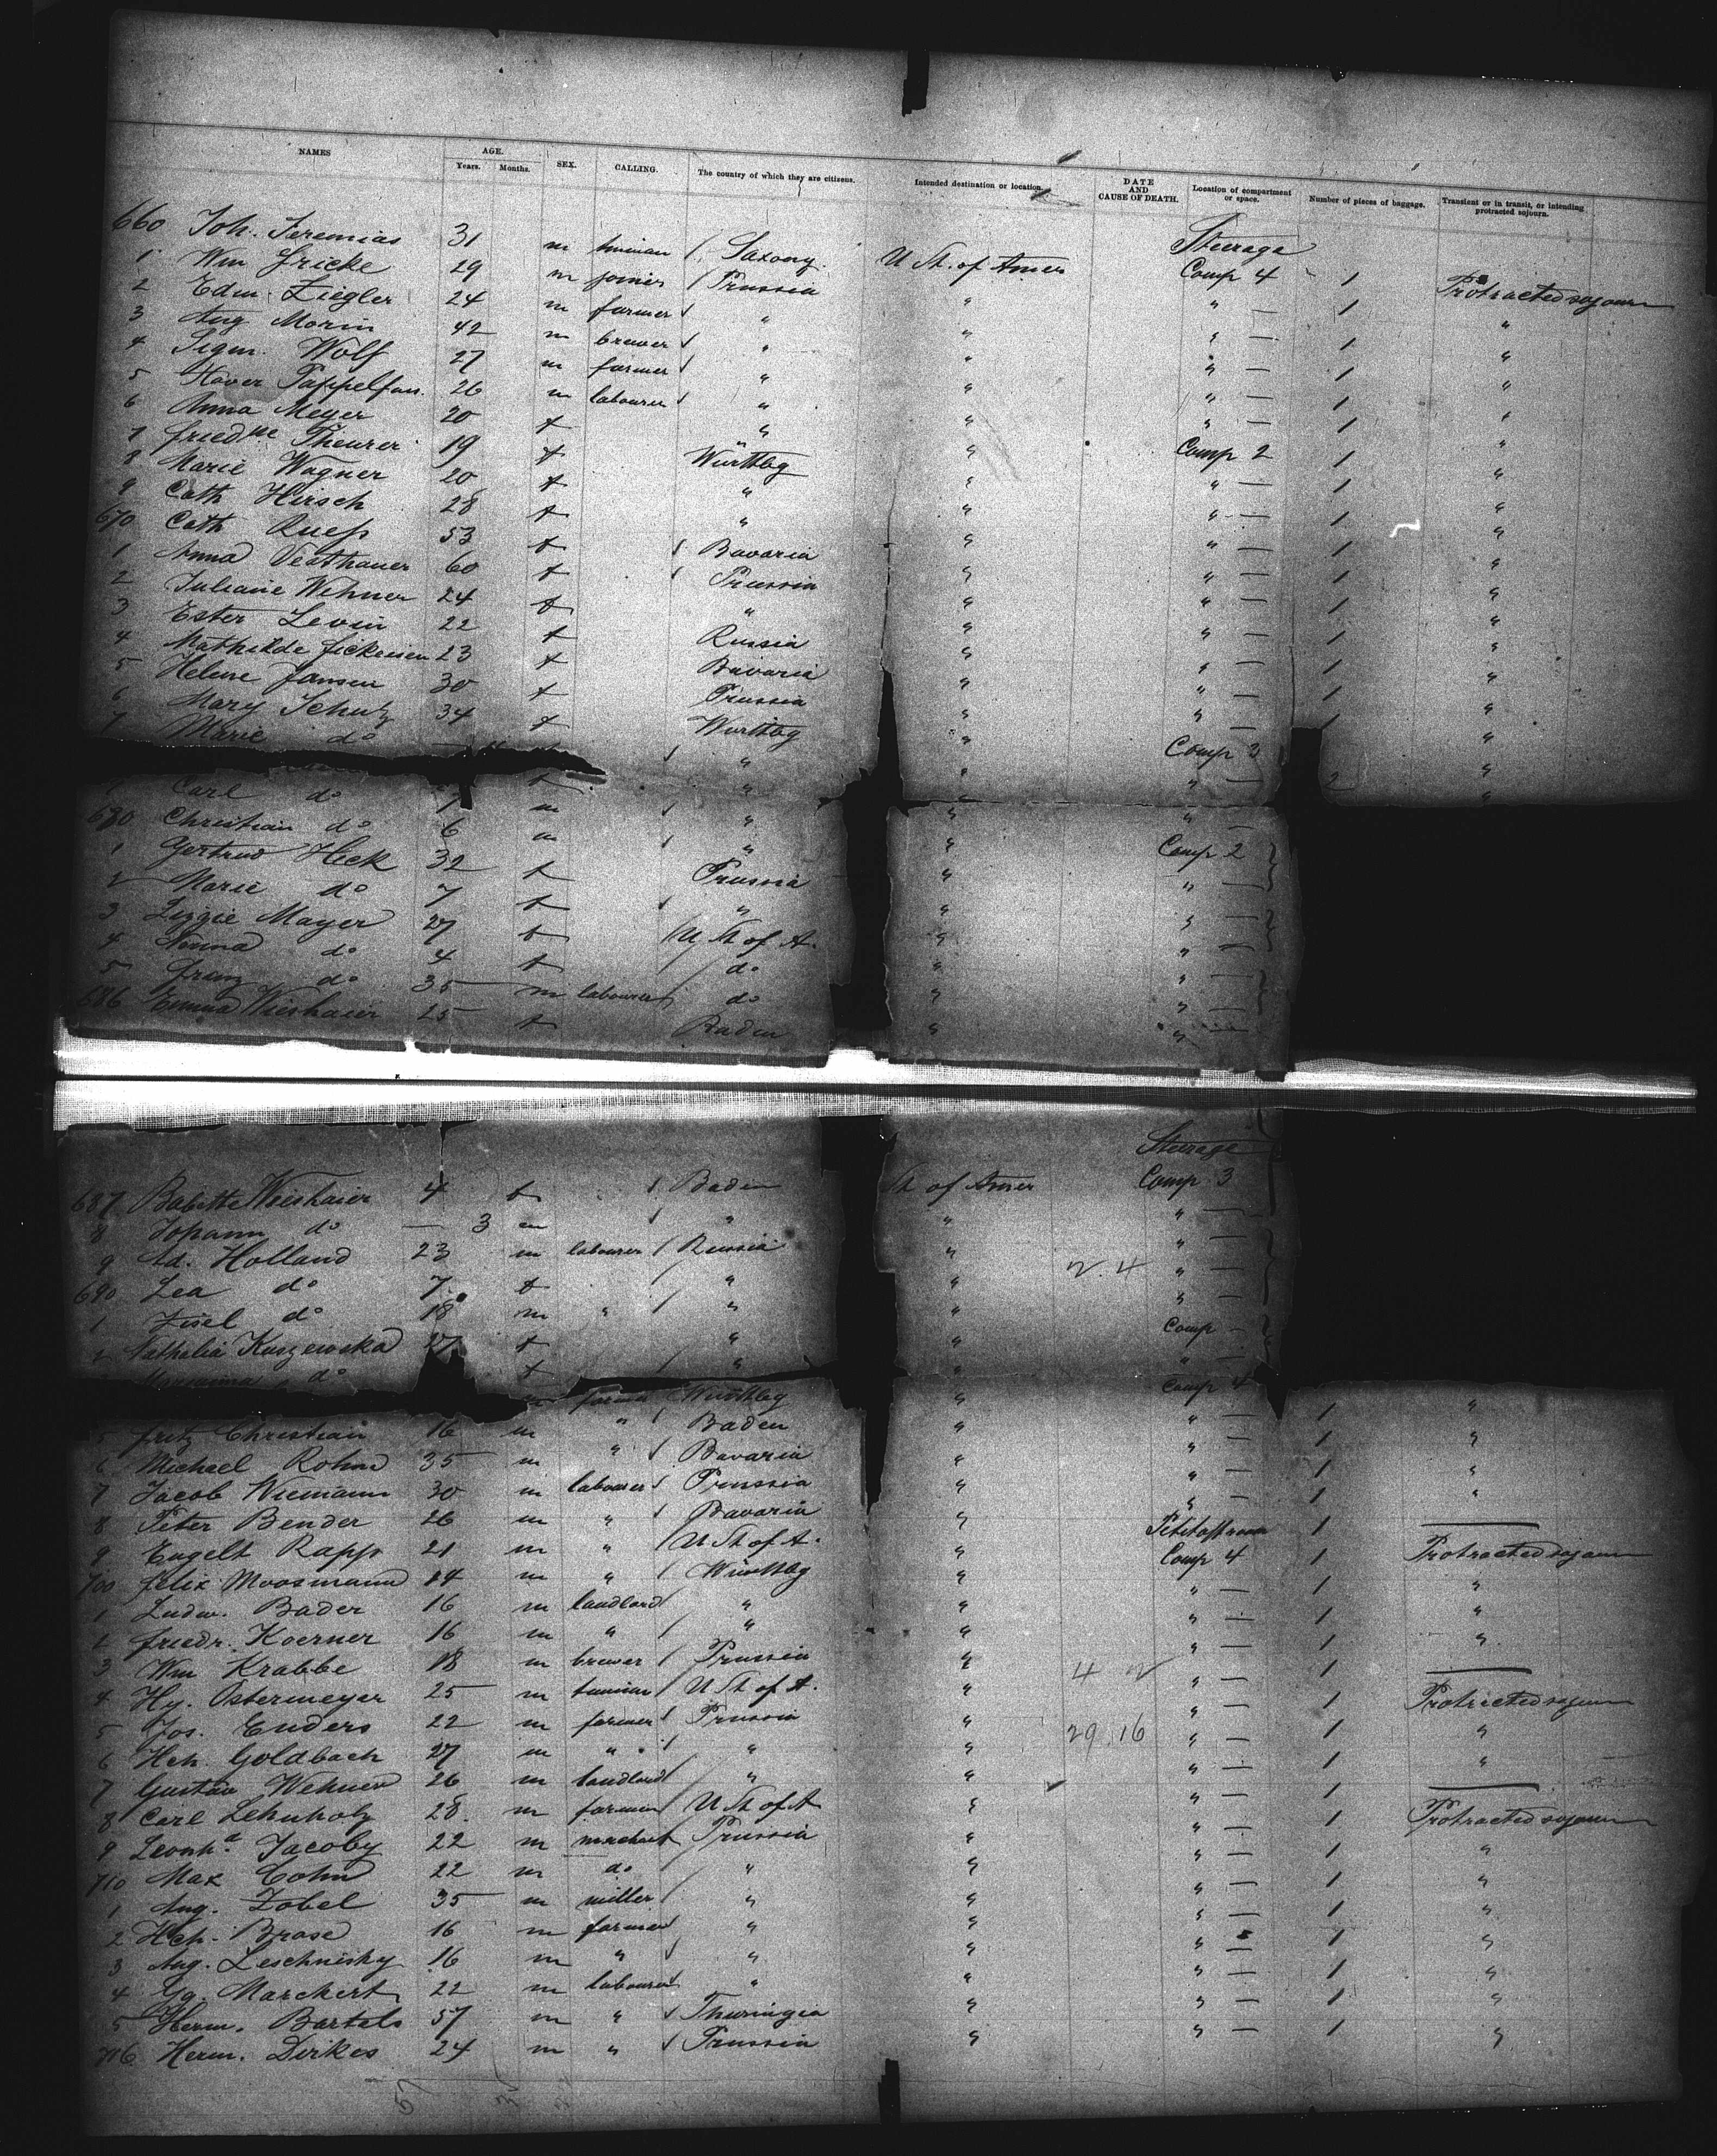 NAMES AGE. Years. Months. SEX. CALLING. The country of which they are citizens. Intended destination or location. DATE AND CAUSE OF DEATH. Location of compartment or space. Number of pieces of baggage. Transient or in transit, or intending protracted sojourn.
Steerage
660 Joh. Jeremias 31 m Saxony U St. of Amer Comp 4 1 Protracted sojourn
1 Wm Fricke 29 m joiner Prussia " " — 1 "
2 Edm. Ziegler 24 m farmer " " " — 1 "
3 Aug Morin 42 m brewer " " " — 1 "
4 Sigm. Wolf 27 m farmer " " " — 1 "
5 26 m labourer " " " — 1 "
6 Anna Meyer 20 f " " Comp 2 1 "
7 Friedke Theurer 19 f Württbg " " — 1 "
8 Marie Wagner 20 f " " " — 1 "
9 Cath Hirsch 28 f " " " — 1 "
670 Cath Ruess 53 f Bavaria " " — 1 "
1 Anna 60 f Prussia " " — 1 "
2 Juliane Wehner 24 f " " " — 1 "
3 Ester Levin 22 f Russia " " — 1 "
4 Mathilde 23 f Bavaria " " — 1 "
5 Helene Jansen 30 f Prussia " " — 1 "
6 Mary Schulz 34 f Württbg " Comp 3 "
7 Marie do " " " — 2 "
Carl do 1 m " " " —
680 Christian do 6 m " " Comp 2
1 Gertrud Heck 32 f Prussia " " —
2 Marie do 7 f " " " —
3 Lizzie Mayer 27 f U St of A. " " —
4 do 4 f do " " —
5 Franz do 35 m labourer do " " —
686 Emma Wieshaier 25 f Baden " " —
Steerage
687 Babette Wieshaier 4 f Baden St of Amer Comp 3
8 Johann do — 3 m " " " —
9 Ad. Holland 23 m labourer Russia " " —
2. 4
690 Lea do 7 f " " " —
1 Zisel do 18 m " " " " —
2 Nathalia Kuszewska 27 f " " Comp —
do f " " " —
m farmer Württbg " Comp 4 1 "
5 Fritz Christian 16 m " Baden " " — 1 "
6 Michael Rohm 35 m " Bavaria " " — 1 "
7 Jacob Niemann 30 m labourer Prussia " " — 1 "
8 Peter Bender 26 m " Bavaria " " — 1 —
9 Engelt Rapp 21 m " U St of A. " 1 Protracted sojourn
700 Felix Moosmann 24 m " Württbg " Comp 4 1 "
1 Ludw. Bader 16 m landlord " " " — 1 "
2 Friedr. Koerner 16 m " " " " — 1 "
3 Wm Krabbe 18 m brewer Prussia " " — 1 —
4 2
4 Hy. Ostermeyer 25 m U St of A. " " — 1 Protracted sojourn
5 Jos. Enders 22 m farmer Prussia " " — 1 "
29. 16
6 Hch. Goldbach 27 m " " " " — 1 "
7 Gustav Wehner 26 m landlord " " " — 1 —
8 Carl Lehnholz 28 m farmer U St of A " " — 1 Protracted sojourn
9 Leonhd. Jacoby 22 m merchant Prussia " " — 1 "
710 Max Cohn 22 m do " " " — 1 "
1 Aug. Zobel 35 m miller " " " — 1 "
2 Hch. Brase 16 m farmer " " " — 1 "
3 Aug. Leschnisky 16 m " " " " — 1 "
4 Gg. Marckert 22 m labourer " " " — 1 "
5 Herm. Bartels 57 m " Thuringia " " — 1 "
716 Herm. Dirkes 24 m " Prussia " " — 1 "